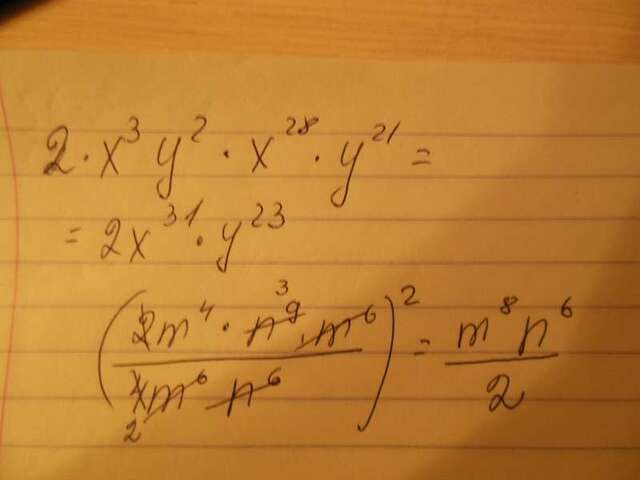 2 · x³ y² · x²⁸ · y²¹ =
= 2x³¹ · y²³
(2m⁴ · n⁹ · m⁶ / 4m⁶ n⁶)² = m⁸ n⁶ / 2
3
2